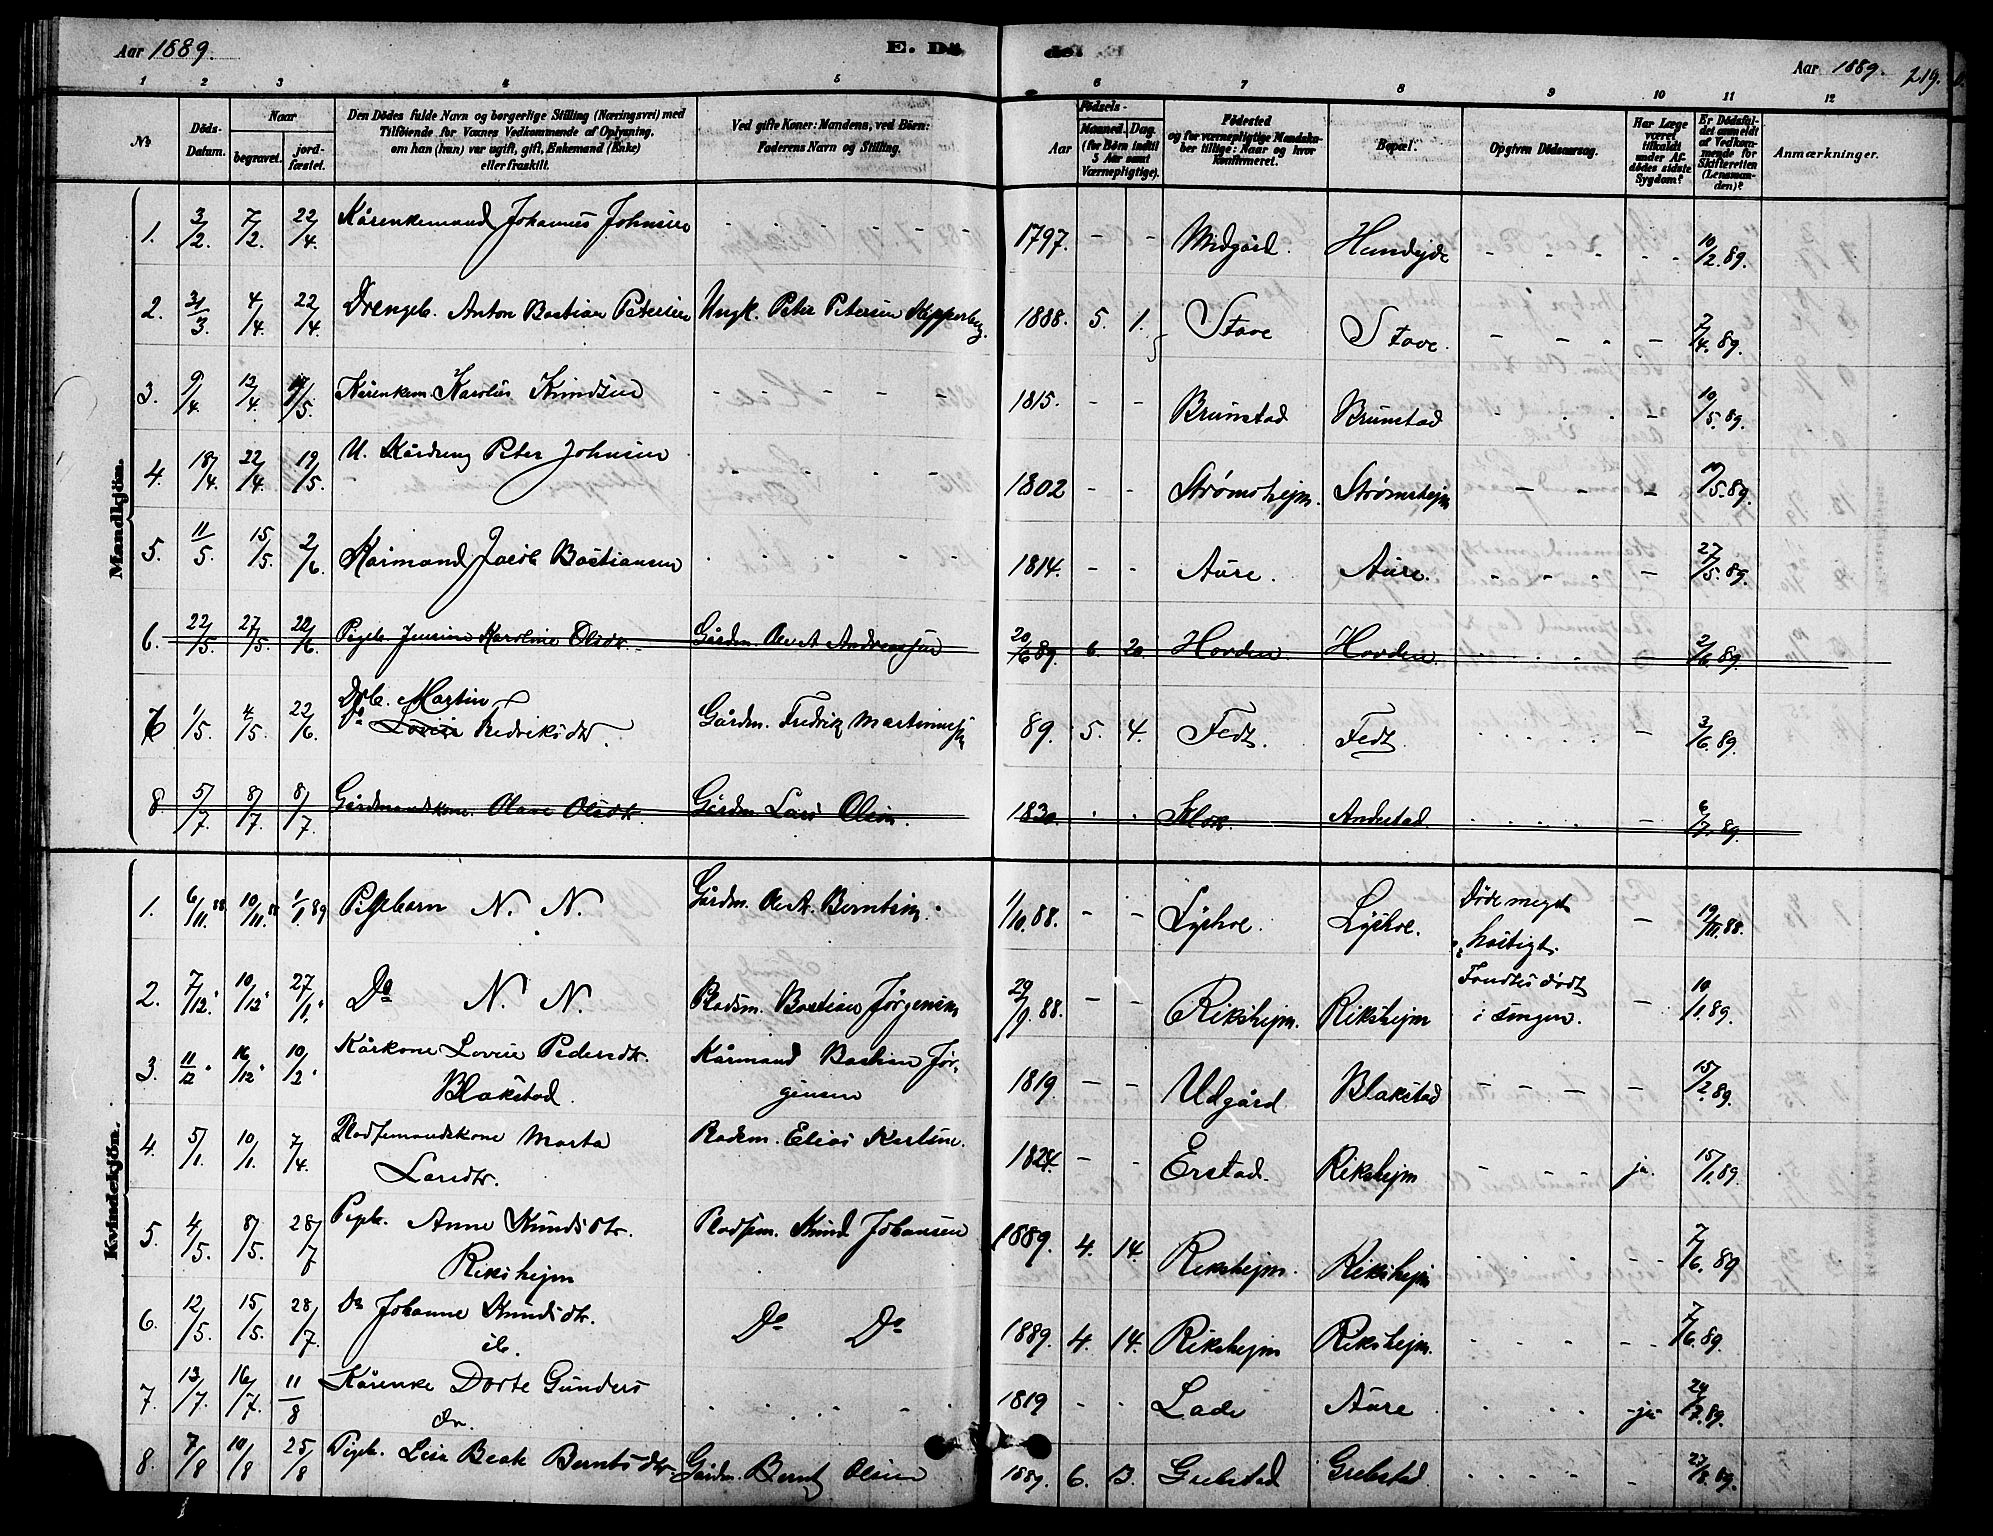 Aar 1889.
E. Dö
de.
Aar 1889. 219.
1 2 3 4 5 6 7 8 9 10 11 12
No
Döds-Datum.
Naar
begravet.
jord-fæstet.
Den Dödes fulde Navn og borgerlige Stilling (Næringsvei) med
Tilföiende for Voxnes Vedkommende af Oplysning,
om han (hun) var ugift, gift, Enkemand (Enke)
eller fraskilt.
Ved gifte Koner: Mandens, ved Börn:
Faderens Navn og Stilling.
Födsels-
Aar
Maaned. Dag.
(for Börn indtil
5 Aar samt
Værnepligtige).
Födested
og for værnepligtige Mandska-
ber tillige: Naar og hvor
Konfirmeret.
Bopæl.
Opgiven Dödsaarsag.
Har Læge
været
tilkaldt
under Af-
dödes sidste
Sygdom?
Er Dödsfal-
det anmeldt
af Vedkom-
mende for
Skifteretten
(Lensman-
den)?
Anmærkninger.
Mandkjön.
1. 3/2. 7/2. 22/4. Kårenkemand Johannes Johnsen - - - - - 1797. - - Midgård. Hundejde - - - - - 10/2.89.
2. 31/3. 4/4. 22/4. Drengeb. Anton Bastian Petersen Ungk. Peter Petersen Kipperberg. 1888. 5. 1. Stave Stave. - - - - 7/4.89.
3. 9/4. 13/4. /5. Kårenkem. Karolus Knudsen - - - - - 1815. - - Brunstad Brunstad - - - - 10/5.89.
4. 18/4. 22/4. 19/5. U. Kårdreng Peter Johnsen - - - - - 1802 - - Strømshejm. Strømshejm - - - /5.89.
5. 11/5. 15/5. 2/6. Kårmand Jacob Bastiansen - - - - - 1814. - - Aure. Aure. - - - - 27/5.89.
6. 22/5. 27/5. 22/6. Pigeb. Jensine Karoline Olsdtr. Gårdm. Ole A. Andreassen 20/6 89. 6. 20. Hovden. Hovden. - - - - 2/6.89.
7 1/5. 4/5. 22/6. Drb. Martin
Do Lovise Fredriksdtr. Gårdm. Fredrik Martinussen 89. 5. 4. Fedt. Fedt. - - - - 3/6.89.
8 5/7. 8/7. 8/7. Gårdmandskone. Olave Olsdtr. Gårdm. Lars Olsen. 1830. - - Klok. Andestad. - - - - 6/7.89.
Kvindekjön.
1. 6/11 88. 10/11 88. 1/1 89 Pigebarn N. N. Gårdm. Ole A. Berntsen. 1/10.88. - - Lyshoe. Lyshoe. Døde meget
hastigt. 19/11.88.
2. 7/12. 10/12 27/1. Do N. N. Pladsm. Bastian Jørgensen 29/9.88. - - Rikshejm. Rikshejm Fandtes dødt
i sengen. - 10/1.89.
3. 11/12 16/12 10/2 Kårkone Lovise Pedersdtr. Kårmand Bastian Jør-
Blakstad. gensen 1819 - - Udgård Blakstad - - - - 15/2.89.
4. 5/1. 10/1. 7/4. Pladsemandskone Marta Pladsm. Elias Karlsen.
Larsdtr. 1824. - - Erstad. Rikshejm - - - ja. 15/1.89.
5. 4/5. 8/5. 28/7 Pigeb. Anne Knudsdtr. Pladsem. Knud Johansen
Rikshejm 1889. 4. 14. Rikshejm. Rikshejm - - - - 7/6.89
6. 12/5. 15/5. 28/7. Do Johanne Knudsdtr. Do Do
ib. 1889. 4. 14. Rikshejm Rikshejm. - - - - 7/6.89.
7. 13/7. 16/7. 11/8 Kårenke Dorte Gunders
dr. - - - - - 1819 - - Lade Aure - - - - ja - 24/7.89.
8. 7/8 10/8 25/8 Pigeb. Lise Beate Berntsdtr Gårdm. Bernt Olsen 1889. 6. 13. Grebstad Grebstad - - - - 23/8.89.